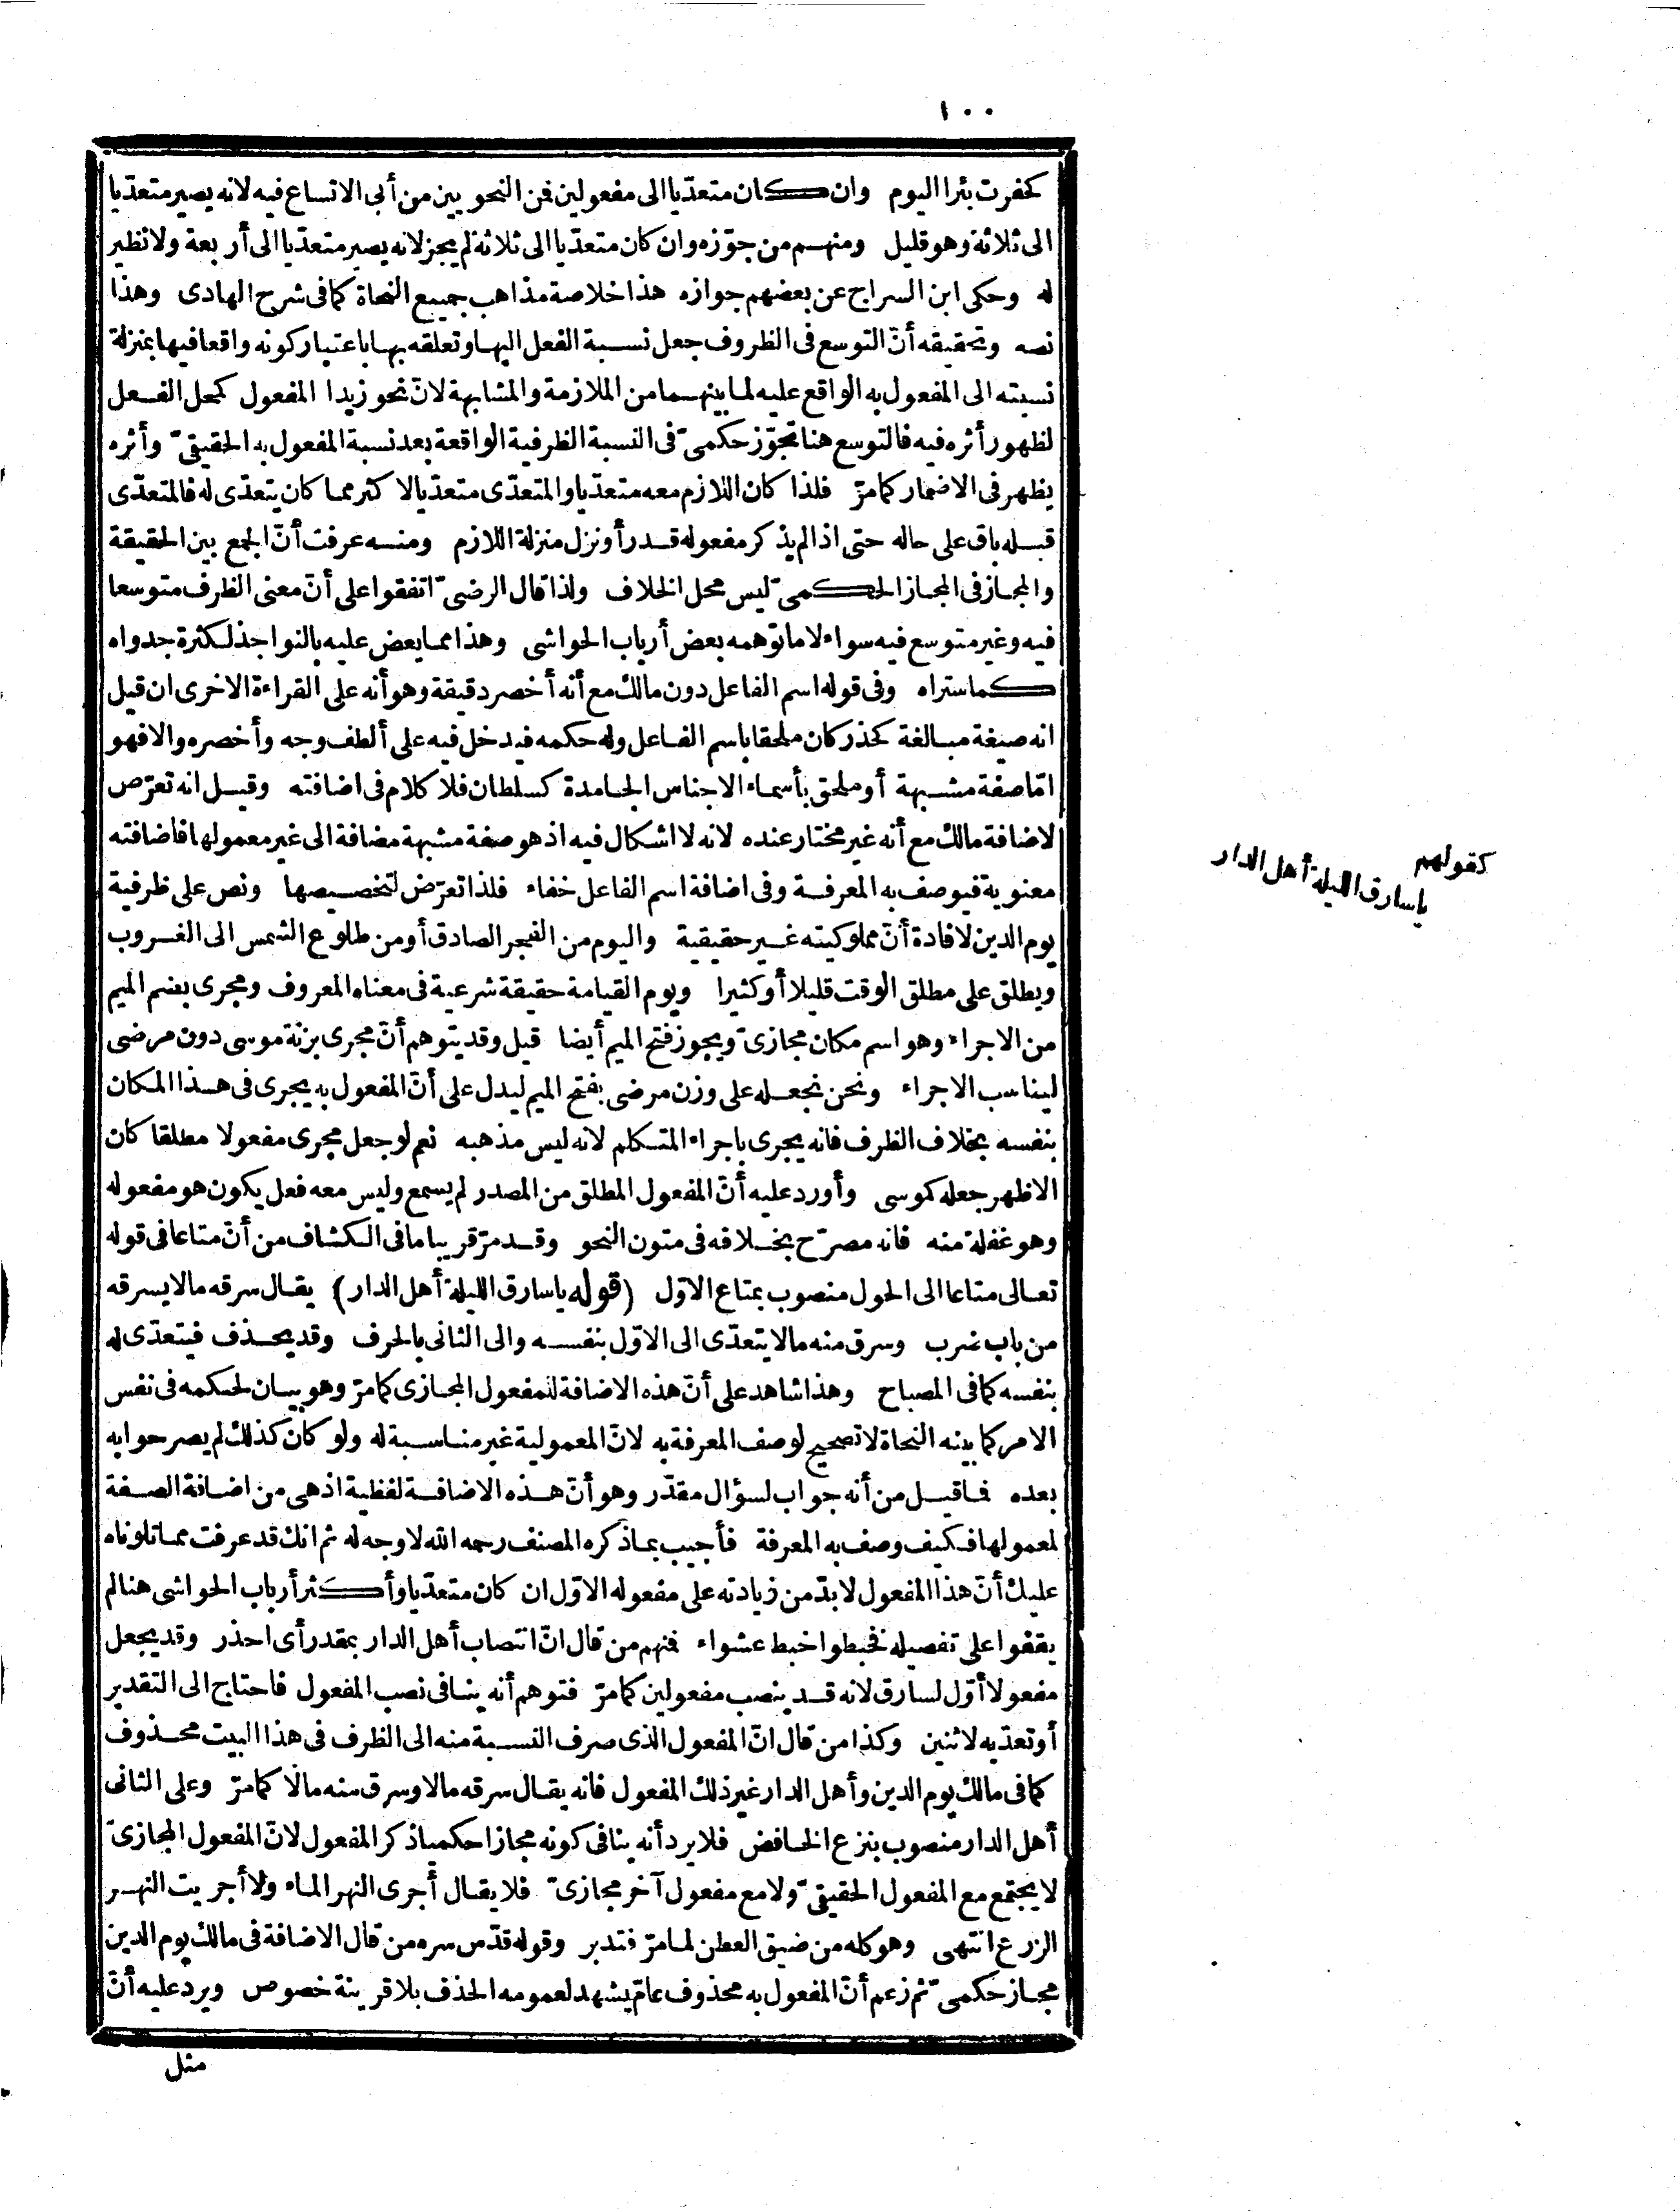 ١٠٠
كحفرت بئرا اليوم وان كان متعدّيا الى مفعولين فمن النحويين من أبى الاتساع فيه لانه يصير متعدّيا
الى ثلاثة وهو قليل ومنهم من جوّزه وان كان متعدّيا الى ثلاثة لم يجز لانه يصير متعدّيا الى أربعة ولا نظير
له وحكى ابن السراج عن بعضهم جوازه هذا خلاصة مذاهب جميع النحاة كما فى شرح الهادى وهذا
نصه وتحقيقه أنّ التوسع فى الظروف جعل نسبة الفعل اليها وتعلقه بها باعتبار كونه واقعا فيها بمنزلة
نسبته الى المفعول به الواقع عليه لما بينهما من الملازمة والمشابهة لانّ نحو زيدا المفعول كمحل الفعل
لظهور أثره فيه فالتوسع هنا تجوّز حكمىّ فى النسبة الظرفية الواقعة بعد نسبة المفعول به الحقيقىّ وأثره
يظهر فى الاضمار كما مرّ فلذا كان اللازم معه متعدّيا والمتعدّى متعدّيا لاكثر مما كان يتعدّى له فالمتعدّى
قبله باق على حاله حتى اذا لم يذكر مفعوله قدر أو نزل منزلة اللازم ومنه عرفت أنّ الجمع بين الحقيقة
والمجاز فى المجاز الحكمىّ ليس محل الخلاف ولذا قال الرضىّ اتفقوا على أنّ معنى الظرف متوسعا
فيه وغير متوسع فيه سواء لا ما توهمه بعض أرباب الحواشى وهذا مما يعض عليه بالنواجذ لكثرة جدواه
كما ستراه وفى قوله اسم الفاعل دون مالك مع أنه أخصر دقيقة وهو أنه على القراءة الاخرى ان قيل
انه صيغة مبالغة كحذر كان ملحقا باسم الفاعل وله حكمه فيدخل فيه على ألطف وجه وأخصره والا فهو
امّا صفة مشبهة أو ملحق بأسماء الاجناس الجامدة كسلطان فلا كلام فى اضافته وقيل انه تعرّض
لاضافة مالك مع أنه غير مختار عنده لانه لا اشكال فيه اذ هو صفة مشبهة مضافة الى غير معمولها فاضافته
معنوية فيوصف به المعرفة وفى اضافة اسم الفاعل خفاء فلذا تعرّض لتخصيصها ونص على ظرفية
يوم الدين لافادة أنّ مملوكيته غير حقيقية واليوم من الفجر الصادق أو من طلوع الشمس الى الغروب
ويطلق على مطلق الوقت قليلا أو كثيرا ويوم القيامة حقيقة شرعية فى معناه المعروف ومجرى بضم الميم
من الاجراء وهو اسم مكان مجازىّ ويجوز فتح الميم أيضا قيل وقد يتوهم أنّ مجرى بزنة موسى دون مرضى
ليناسب الاجراء ونحن نجعله على وزن مرضى بفتح الميم ليدل على أنّ المفعول به يجرى فى هذا المكان
بنفسه بخلاف الظرف فانه يجرى باجراء المتكلم لانه ليس مذهبه نعم لو جعل مجرى مفعولا مطلقا كان
الاظهر جعله كموسى وأورد عليه أنّ المفعول المطلق من المصدر لم يسمع وليس معه فعل يكون هو مفعوله
وهو غفلة منه فانه مصرّح بخلافه فى متون النحو وقد مرّ قريبا ما فى الكشاف من أنّ متاعا فى قوله
تعالى متاعا الى الحول منصوب بمتاع الاوّل (قوله يا سارق الليلة أهل الدار) يقال سرقه مالا يسرقه
من باب ضرب وسرق منه مالا يتعدّى الى الاوّل بنفسه والى الثانى بالحرف وقد يحذف فيتعدّى له
بنفسه كما فى المصباح وهذا شاهد على أنّ هذه الاضافة للمفعول المجازى كما مرّ وهو بيان لحكمه فى نفس
الامر كما بينه النحاة لا تصحيح لوصف المعرفة به لانّ المعمولية غير مناسبة له ولو كان كذلك لم يصر حوابه
بعده فما قيل من أنه جواب لسؤال مقدّر وهو أنّ هذه الاضافة لفظية اذ هى من اضافة الصفة
لمعمولها فكيف وصف به المعرفة فأجيب بما ذكره المصنف رحمه الله لا وجه له ثم انك قد عرفت مما تلوناه
عليك أنّ هذا المفعول لا بدّ من زيادته على مفعوله الاوّل ان كان متعدّيا وأكثر أرباب الحواشى هنا لم
يقفوا على تفصيله فخبطوا خبط عشواء فمنهم من قال انّ انتصاب أهل الدار بمقدر أى احذر وقد يجعل
مفعولا أوّل لسارق لانه قد ينصب مفعولين كما مرّ فتوهم أنه ينافى نصب المفعول فاحتاج الى التقدير
أو تعدّيه لاثنين وكذا من قال انّ المفعول الذى صرف النسبة منه الى الظرف فى هذا البيت محذوف
كما فى مالك يوم الدين وأهل الدار غير ذلك المفعول فانه يقال سرقه مالا وسرق منه مالا كما مرّ وعلى الثانى
أهل الدار منصوب بنزع الخافض فلا يرد أنه ينافى كونه مجازا حكميا ذكر المفعول لانّ المفعول المجازىّ
لا يجتمع مع المفعول الحقيقىّ ولا مع مفعول آخر مجازىّ فلا يقال أجرى النهر الماء ولا أجريت النهر
الزرع انتهى وهو كله من ضيق العطن لما مرّ فتدبر وقوله قدّس سره من قال الاضافة فى مالك يوم الدين
مجاز حكمىّ ثم زعم أنّ المفعول به محذوف عامّ يشهد لعمومه الحذف بلا قرينة خصوص ويرد عليه أنّ
مثل
كقولهم
يا سارق الليلة أهل الدار